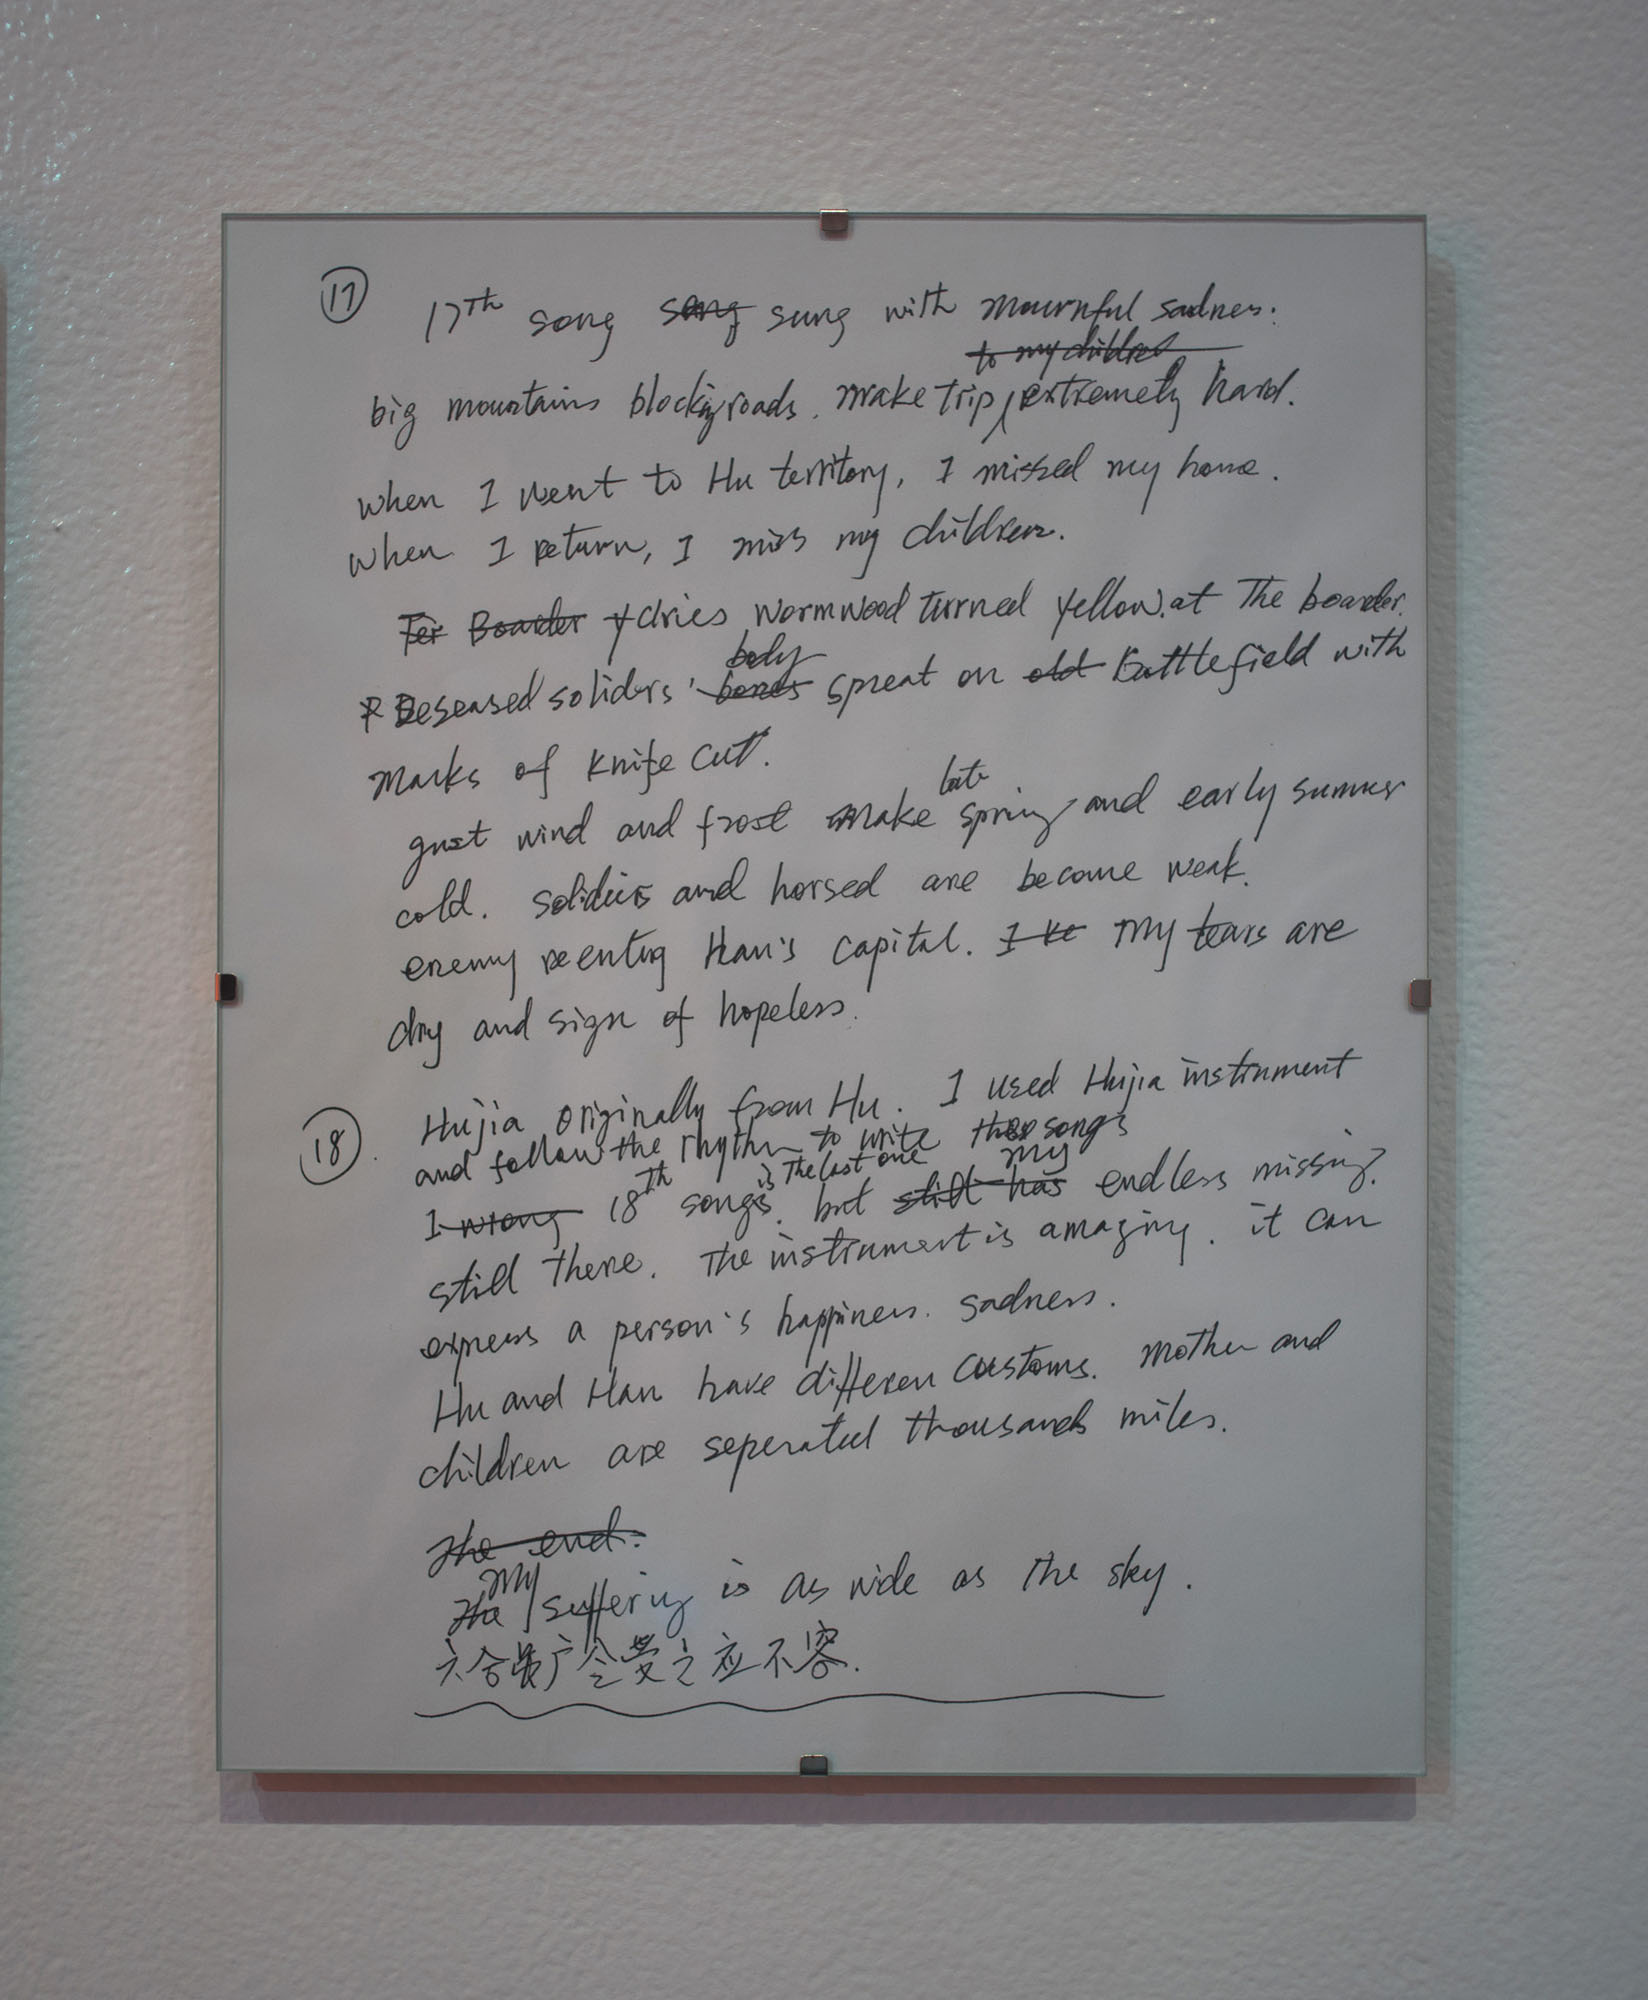 17
17th song song sung with mournful sadness.
to my children
big mountains blocking roads. make trip extremely hard.
when I went to Hu territory, I missed my home.
when I return, I miss my children.
Fer Boarder dries wormwood turned yellow. at The boarder.
body
Deseased soliders' bones spreat on old battlefield with
marks of knife cut.
late
gust wind and frost make spring and early summer
cold. soliders and horsed are become weak.
enemy reentig Han's capital. I ke My tears are
dry and sign of hopeless.
18
Hujia originally from Hu. I used Hujia instrument
and follow the rhythm to write songs
is The last one my
I wrong 18th songs. but still has endless missing.
still there. The instrument is amazing. it can
express a person's happiness. sadness.
Hu and Han have differen customs. Mother and
children are seperated thousands miles.
The end.
my
The suffering is as wide as the sky.
六合虽广兮受之应不容.